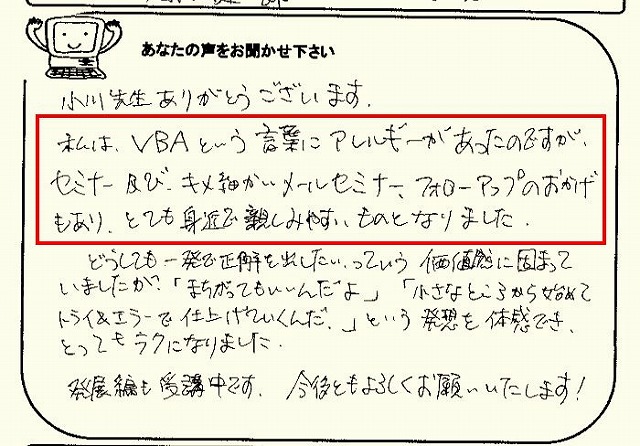 あなたの声をお聞かせ下さい
小川先生ありがとうございます.
私は、VBAという言葉にアレルギーがあったのですが、
セミナー及び、キメ細かいメールセミナー、フォローアップのおかげ
もあり、とても身近で親しみやすいものとなりました.
どうしても一発で正解を出したいっていう価値観に固まって
いましたが、「まちがってもいいんだよ」「小さなところから始めて
トライ&エラーで仕上げていくんだ.」という発想を体感でき、
とってもラクになりました.
発展編も受講中です. 今後ともよろしくお願いいたします!